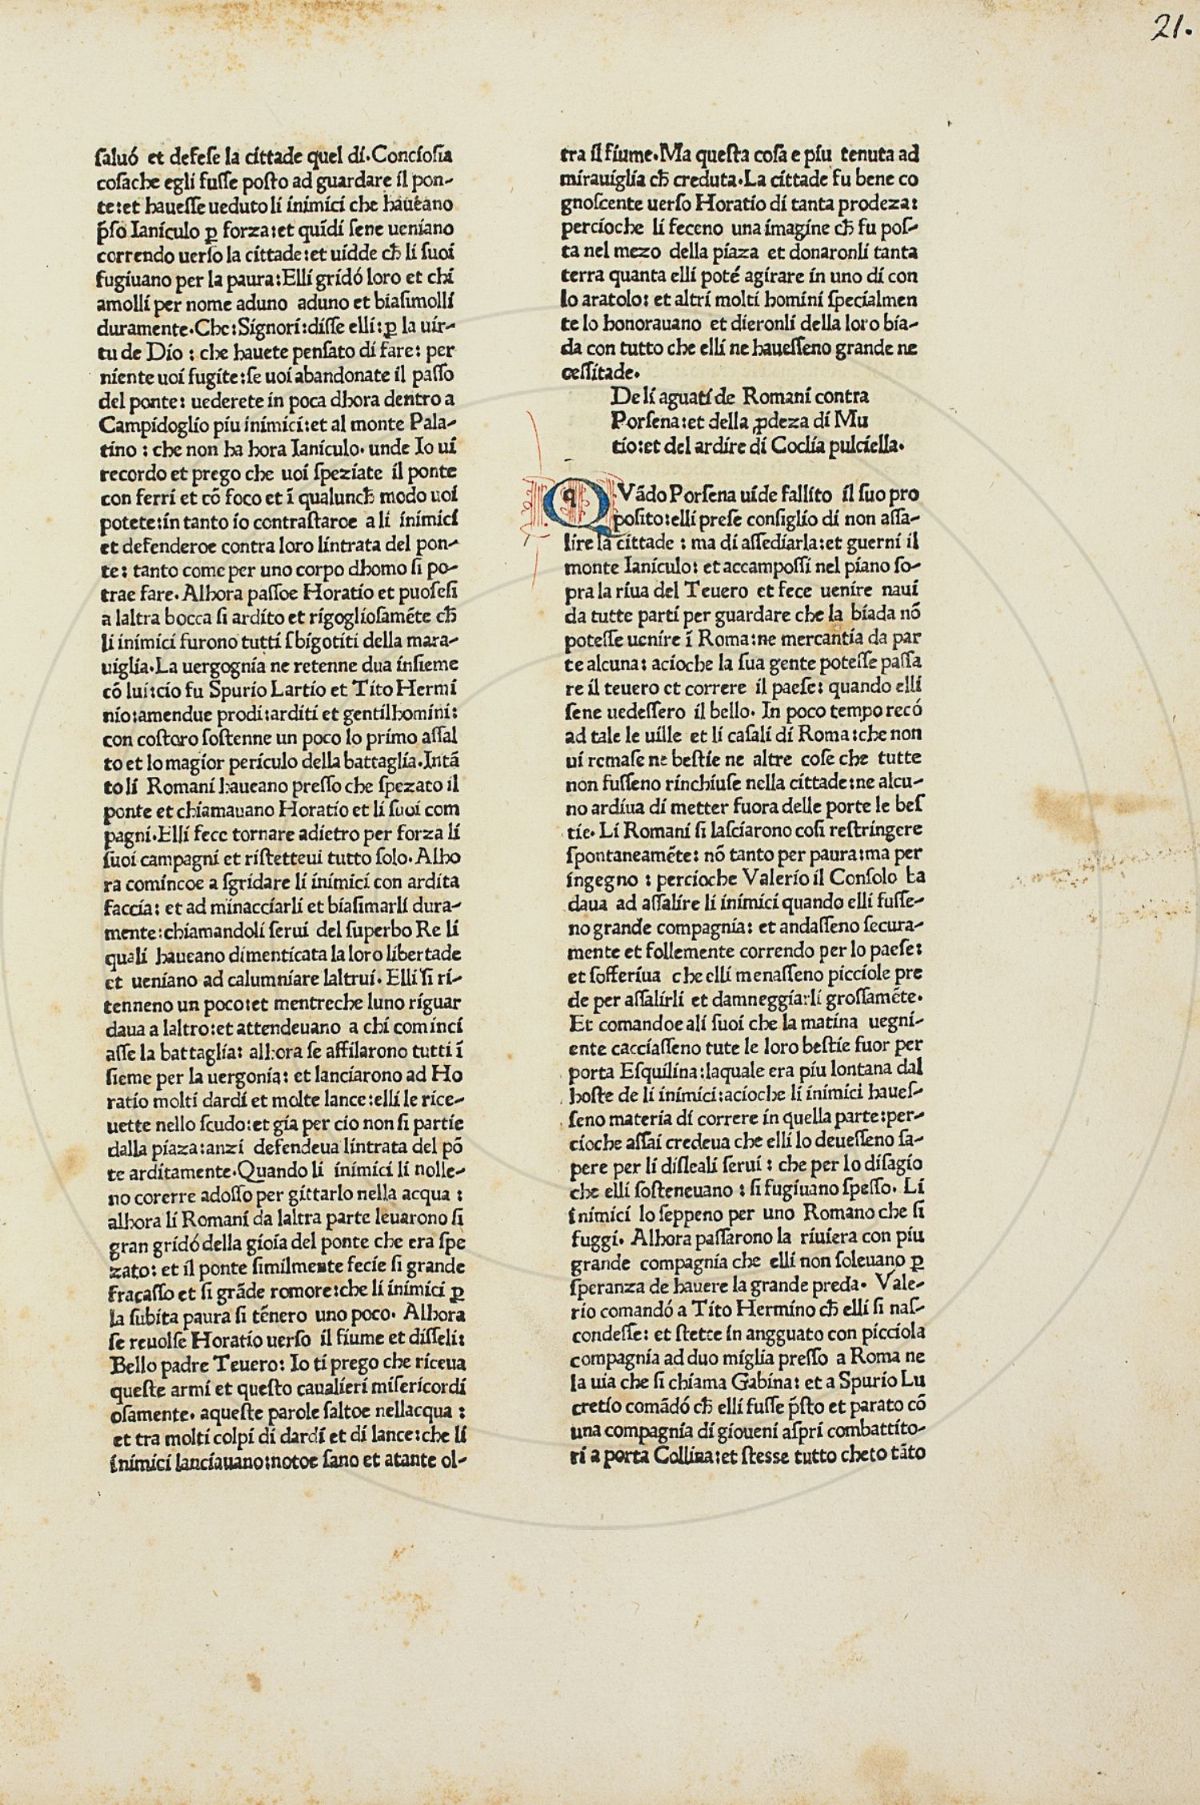 21.
ſaluó et defeſe la cittade quel di. Concioſia
coſache egli fuſſe poſto ad guardare il pon-
te: et haueſſe ueduto li inimici che haueano
p̄ſo Ianiculo ꝑ forza: et quīdi ſene ueniano
correndo uerſo la cittade: et uidde cħ li ſuoi
fugiuano per la paura: Elli gridó loro et chi
amolli per nome aduno aduno et biaſimolli
duramente. Che: Signori: diſſe elli: ꝑ la uir-
tu de Dio: che hauete penſato di fare: per
niente uoi fugite: ſe uoi abandonate il paſſo
del ponte: uederete in poca dhora dentro a
Campidoglio piu inimici: et al monte Pala-
tino: che non ha hora Ianiculo. unde Io ui
recordo et prego che uoi ſpeziate il ponte
con ferri et cō foco et ī qualuncħ modo uoi
potete: in tanto io contraſtaroe a li inimici
et defenderoe contra loro lintrata del pon-
te: tanto come per uno corpo dhomo ſi po-
trae fare. Alhora paſſoe Horatio et puoſeſi
a laltra bocca ſi ardito et rigoglioſamēte cħ
li inimici furono tutti ſbigotiti della mara-
uiglia. La uergognia ne retenne dua inſieme
cō lui: cio fu Spurio Lartio et Tito Hermi
nio: amendue prodi: arditi et gentilhomini:
con coſtoro ſoſtenne un poco lo primo aſſal
to et lo magior periculo della battaglia. Intā
to li Romani haueano preſſo che ſpezato il
ponte et chiamauano Horatio et li ſuoi com
pagni. Elli fece tornare adietro per forza li
ſuoi campagni et riſtetteui tutto ſolo. Alho
ra comincoe a ſgridare li inimici con ardita
faccia: et ad minacciarli et biaſimarli dura-
mente: chiamandoli ſerui del ſuperbo Re li
quali haueano dimenticata la loro libertade
et ueniano ad calumniare laltrui. Elli ſi ri-
tenneno un poco: et mentreche luno riguar
daua a laltro: et attendeuano a chi cominci
aſſe la battaglia: alhora ſe affilarono tutti ī
ſieme per la uergonia: et lanciarono ad Ho
ratio molti dardi et molte lance: elli le rice-
uette nello ſcudo: et gia per cio non ſi partie
dalla piaza: anzi defendeua lintrata del pō
te arditamente. Quando li inimici li nolle-
no corerre adoſſo per gittarlo nella acqua:
alhora li Romani da laltra parte leuarono ſi
gran gridó della gioia del ponte che era ſpe
zato: et il ponte ſimilmente fecie ſi grande
fracaſſo et ſi grāde romore: che li inimici ꝑ
la ſubita paura ſi tēnero uno poco. Alhora
ſe reuolſe Horatio uerſo il fiume et diſſeli:
Bello padre Teuero: Io ti prego che riceua
queſte armi et queſto caualieri miſericordi
oſamente. aqueſte parole ſaltoe nellacqua:
et tra molti colpi di dardi et di lance: che li
inimici lanciauano: notoe ſano et atante ol-
tra il fiume. Ma queſta coſa e piu tenuta ad
mirauiglia cħ creduta. La cittade fu bene co
gnoſcente uerſo Horatio di tanta prodeza:
percioche li feceno una imagine cħ fu poſ-
ta nel mezo della piaza et donaronli tanta
terra quanta elli poté agirare in uno di con
lo aratolo: et altri molti homini ſpecialmen
te lo honorauano et dieronli della loro bia-
da con tutto che elli ne haueſſeno grande ne
ceſſitade.
De li aguati de Romani contra
Porſena: et della ꝓdeza di Mu
tio: et del ardire di Coclia pulciella.
QVādo Porſena uide fallito il ſuo pro
poſito: elli preſe conſiglio di non aſſa-
lire la cittade: ma di aſſediarla: et guerni il
monte Ianiculo: et accampoſſi nel piano ſo-
pra la riua del Teuero et fece uenire naui
da tutte parti per guardare che la biada nō
poteſſe uenire ī Roma: ne mercantia da par
te alcuna: acioche la ſua gente poteſſe paſſa
re il teuero et correre il paeſe: quando elli
ſene uedeſſero il bello. In poco tempo recó
ad tale le uille et li caſali di Roma: che non
ui remaſe ne beſtie ne altre coſe che tutte
non fuſſeno rinchiuſe nella cittade: ne alcu-
no ardiua di metter fuora delle porte le beſ
tie. Li Romani ſi laſciarono coſi reſtringere
ſpontaneamēte: nō tanto per paura: ma per
ingegno: percioche Valerio il Conſolo ba
daua ad aſſalire li inimici quando elli fuſſe-
no grande compagnia: et andaſſeno ſecura-
mente et follemente correndo per lo paeſe:
et ſofferiua che elli menaſſeno picciole pre
de per aſſalirli et damneggiarli groſſamēte.
Et comandoe ali ſuoi che la matina uegni-
ente cacciaſſeno tute le loro beſtie fuor per
porta Eſquilina: laquale era piu lontana dal
hoſte de li inimici: acioche li inimici haueſ-
ſeno materia di correre in quella parte: per-
cioche aſſai credeua che elli lo deueſſeno ſa-
pere per li diſleali ſerui: che per lo diſagio
che elli ſoſteneuano: ſi fugiuano ſpeſſo. Li
inimici lo ſeppeno per uno Romano che ſi
fuggi. Alhora paſſarono la riuiera con piu
grande compagnia che elli non ſoleuano ꝑ
ſperanza de hauere la grande preda. Vale-
rio comandó a Tito Hermino cħ elli ſi naſ-
condeſſe: et ſtette in angguato con picciola
compagnia ad duo miglia preſſo a Roma ne
la uia che ſi chiama Gabina: et a Spurio Lu
cretio comādó cħ elli fuſſe p̄ſto et parato cō
una compagnia di gioueni aſpri combattito-
ri a porta Collina: et ſtesse tutto cheto tāto